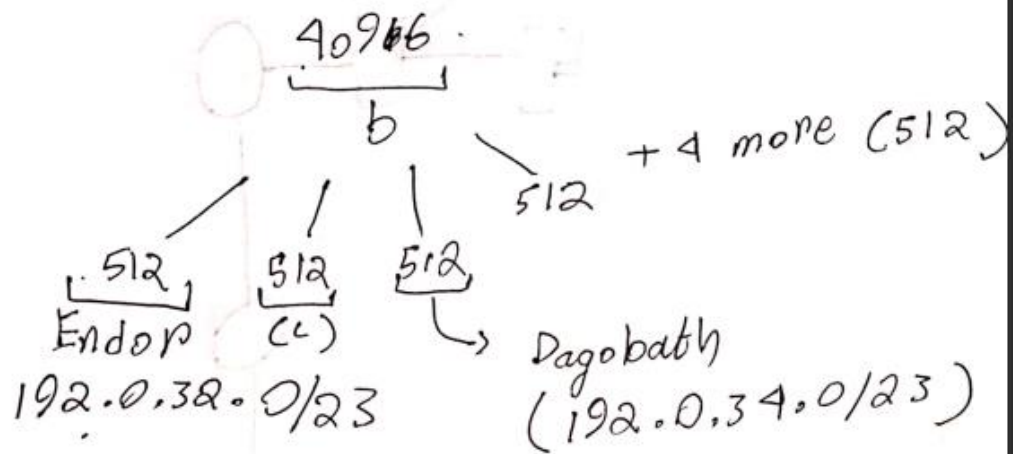 4096
b
+ 4 more (512)
512
512 512 512
Endor (c) Dagobath
192.0.32.0/23 (192.0.34.0/23)